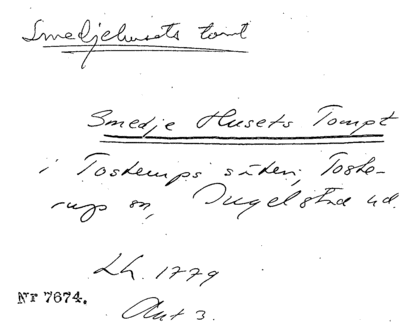 Smedjehusets tomt
Smedje Husets Tompt
i Tosterups säteri, Toste-
rup sn, Ingelstad hd.
Lh. 1779
Akt 3.
Nr 7674.